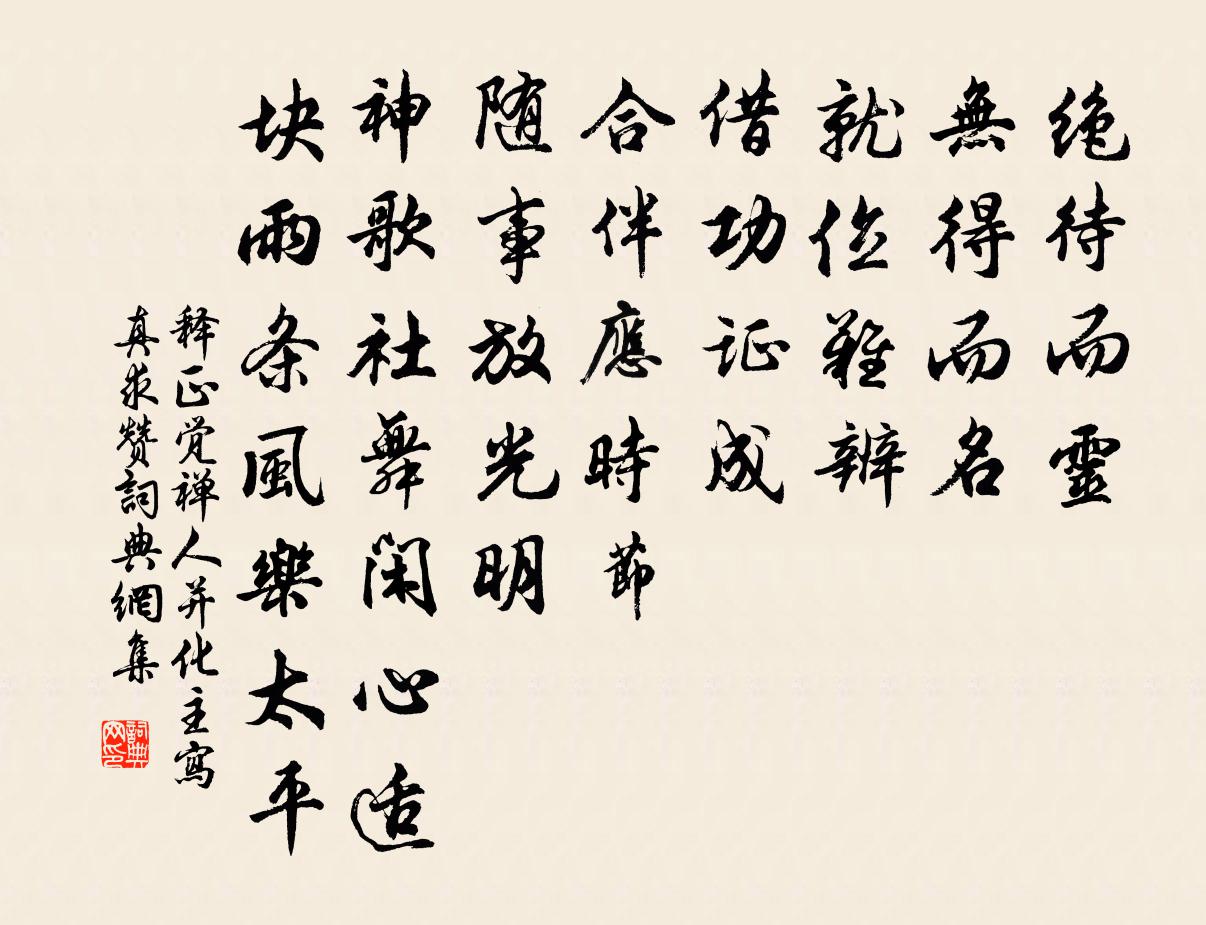 绝待而靈
無得而名
就位難辨
借功证成
合伴應時節
随事放光明
神歌社舞闲心适
块雨条風樂太平
释正觉禅人并化主寫
真求赞詞典網集
詞典网印